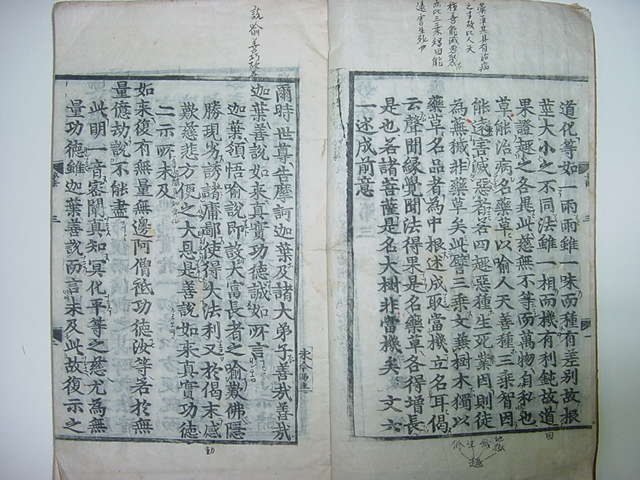 道化等如一雨雖一味而種有差別故根
莖大小之不同法雖一相而機有利鈍故道
果證趣之各異此慈無不等而萬物自私也
草能治病名藥草以喻人天善種三乘智因
能遠害滅惡者若四趣惡種生死業因則徒
為蕪穢非藥草矣此譬三乘文兼樹木獨以
藥草名品者為中根述成取當機立名耳偈
云聲聞緣覺聞法得果是名藥草各得增長
是也若諸菩薩是名大樹非當機矣 文六
一述成前意
爾時世尊告摩訶迦葉及諸大弟子善哉善哉
迦葉善說如來真實功德誠如所言
迦葉領悟喻說即設大富長者之喻歎佛隱
勝現劣誘諸庸鄙使得大法利又於偈末感
歎慈悲方便之大恩是善說如來真實功德
二示所未及
如來復有無量無邊阿僧祇功德汝等若於無
量億劫說不能盡
此明一音密闡真知冥化平等之慈尤為無
量功德雖迦葉善說而言未及此故復示之